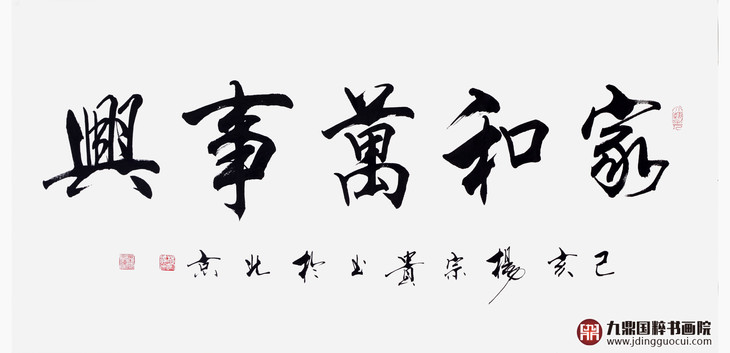 家和萬事興
己亥楊宗貴书於北京
九鼎国粹书画院
www.jdingguocui.com